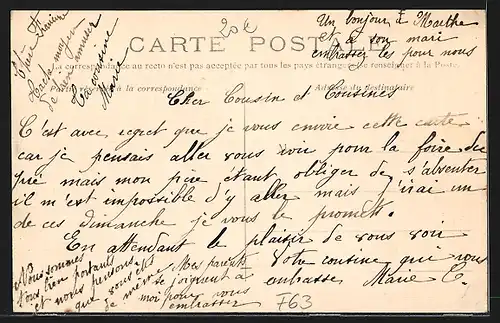 Un bonjour à Marthe
et à son mari
embrasser les pour nous
20€
CARTE POSTALE
La correspondance au recto n'est pas acceptée par tous les pays étrangers. Se renseigner à la Poste.
Partie réservée à la correspondance
Adresse du destinataire
Chère
de
Ta cousine
Marie
Cher Cousin et Cousines
C'est avec regret que je vous envie cette carte
car je pensais aller vous voir pour la foire du
pré mais mon père étant obliger de s'absenter
il m'est impossible d'y aller mais j'irai un
de ces dimanche je vous le promets.
En attendant le plaisir de vous voir
votre cousine qui vous
embrasse Marie C.
Nous sommes
tous bien portants
et nous pensons
que vous êtes
de même
Mes parents
se joignent à
moi pour vous
embrasser
763